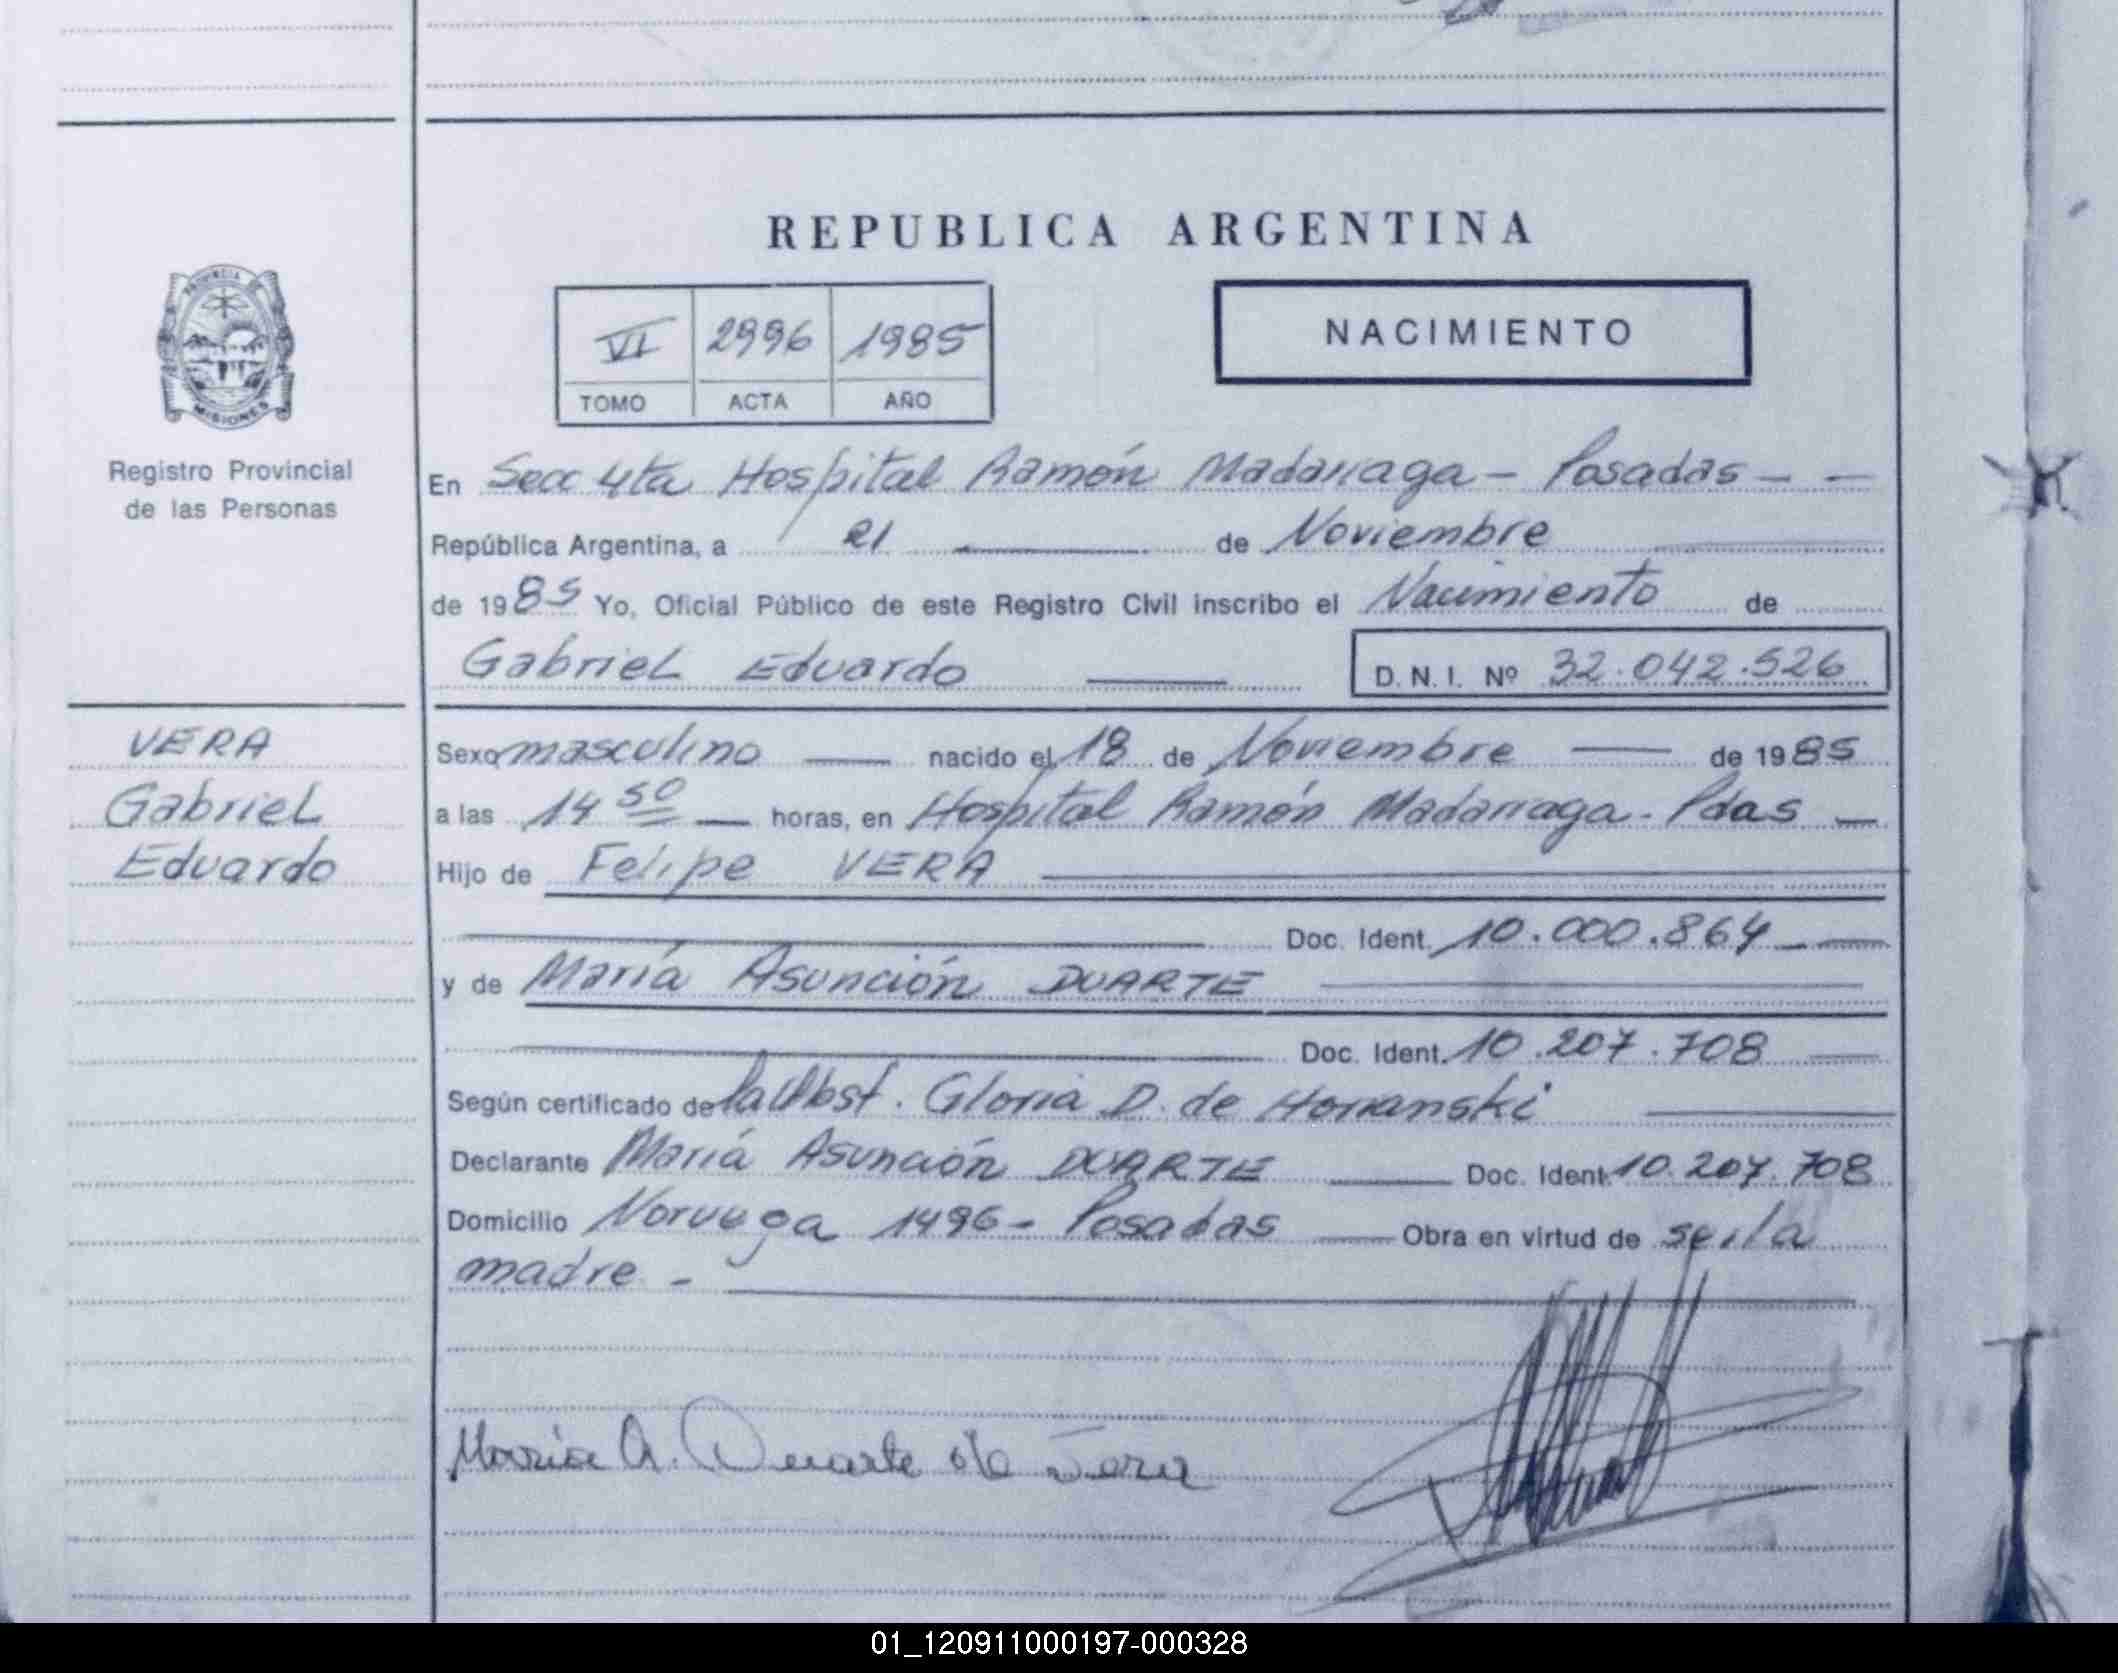 REPUBLICA ARGENTINA
PROVINCIA DE
MISIONES
Registro Provincial
de las Personas
VI 2996 1985
TOMO ACTA AÑO
NACIMIENTO
En Secc 4ta Hospital Ramón Madariaga - Posadas - -
República Argentina, a 21 de Noviembre
de 1985 Yo, Oficial Público de este Registro Civil inscribo el Nacimiento de
Gabriel Eduardo D.N.I. Nº 32.042.526
VERA
Gabriel
Eduardo
Sexo masculino nacido el 18 de Noviembre de 1985
a las 14 50 horas, en Hospital Ramón Madariaga - Pdas
Hijo de Felipe VERA
Doc. Ident. 10.000.864
y de María Asunción DUARTE
Doc. Ident. 10.207.708
Según certificado de Gloria D. de
Declarante María Asunción DUARTE Doc. Ident. 10.207.708
Domicilio Noruega 1496 - Posadas Obra en virtud de ser la
madre -
Maria A. Duarte de Vera
01_120911000197-000328